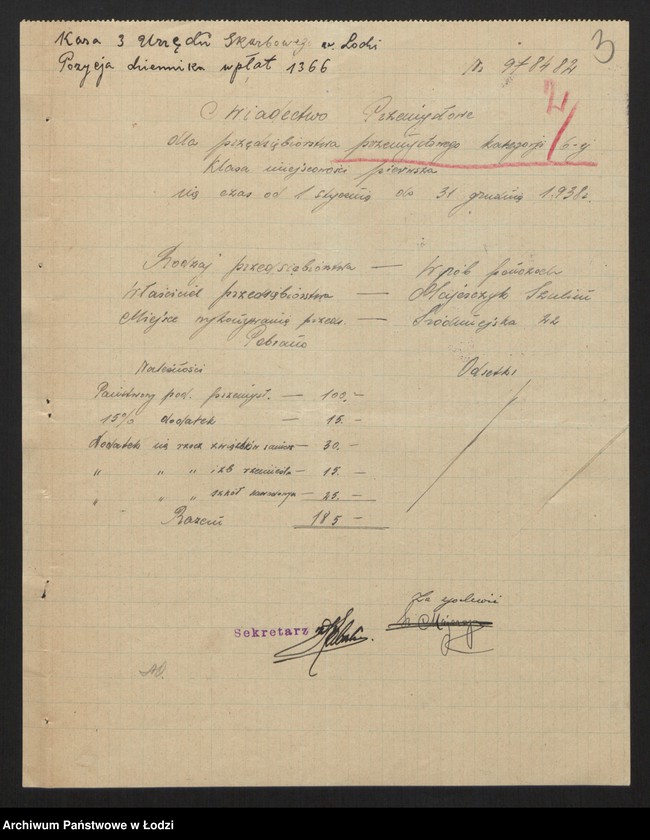 3
Kasa 3 Urzędu Skarbowego w Łodzi
Pozycja dziennika wpłat 1366
№ 978482
Swiadectwo Przemysłowe
dla przedsiębiorstwa przemysłowego kategorji 6-ej
Klasa miejscowości pierwsza
na czas od 1 stycznia do 31 grudnia 1938 r.
Rodzaj przedsiębiorstwa — Wyrób pończoch
Właściciel przedsiębiorstwa — Majerczyk Szulim
Miejsce wykonywania przeds. — Śródmiejska 22
Pobrano
Należności Odsetki
Państwowy pod. przemysł. — 100.-
15% dodatek — 15.-
Dodatek na rzecz związków samorz — 30.-
" " " izb rzemieśla — 15.-
" " " szkół zawodowya — 25.-
Razem 185 -
Za zgodność
Sekretarz
Archiwum Państwowe w Łodzi